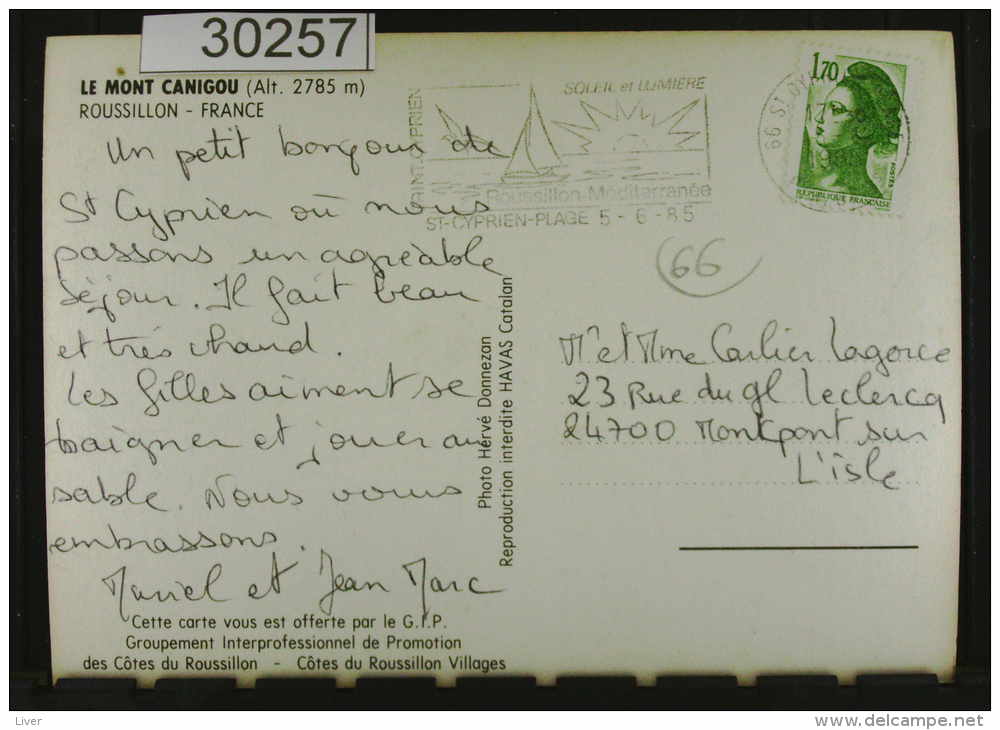 30257
LE MONT CANIGOU (Alt. 2785 m)
ROUSSILLON - FRANCE
Un petit bonjour de
St Cyprien où nous
passons un agréable
séjour. Il fait beau
et très chaud.
Les filles aiment se
baigner et jouer au
sable. Nous vous
embrassons.
Muriel et Jean Marc
Cette carte vous est offerte par le G.I.P.
Groupement Interprofessionnel de Promotion
des Côtes du Roussillon - Côtes du Roussillon Villages
Photo Hervé Donnezan
Reproduction interdite HAVAS Catalan
SAINT-CYPRIEN
SOLEIL et LUMIERE
Roussillon-Méditerranée
ST-CYPRIEN-PLAGE 5 - 6 - 85
66 ST CYPRIEN
1,70
POSTES
REPUBLIQUE FRANCAISE
66
Mr et Mme Carlier Lagorce
23 Rue du gl Leclercq
24700 Montpont sur
L'isle
Liver
delcampe.net